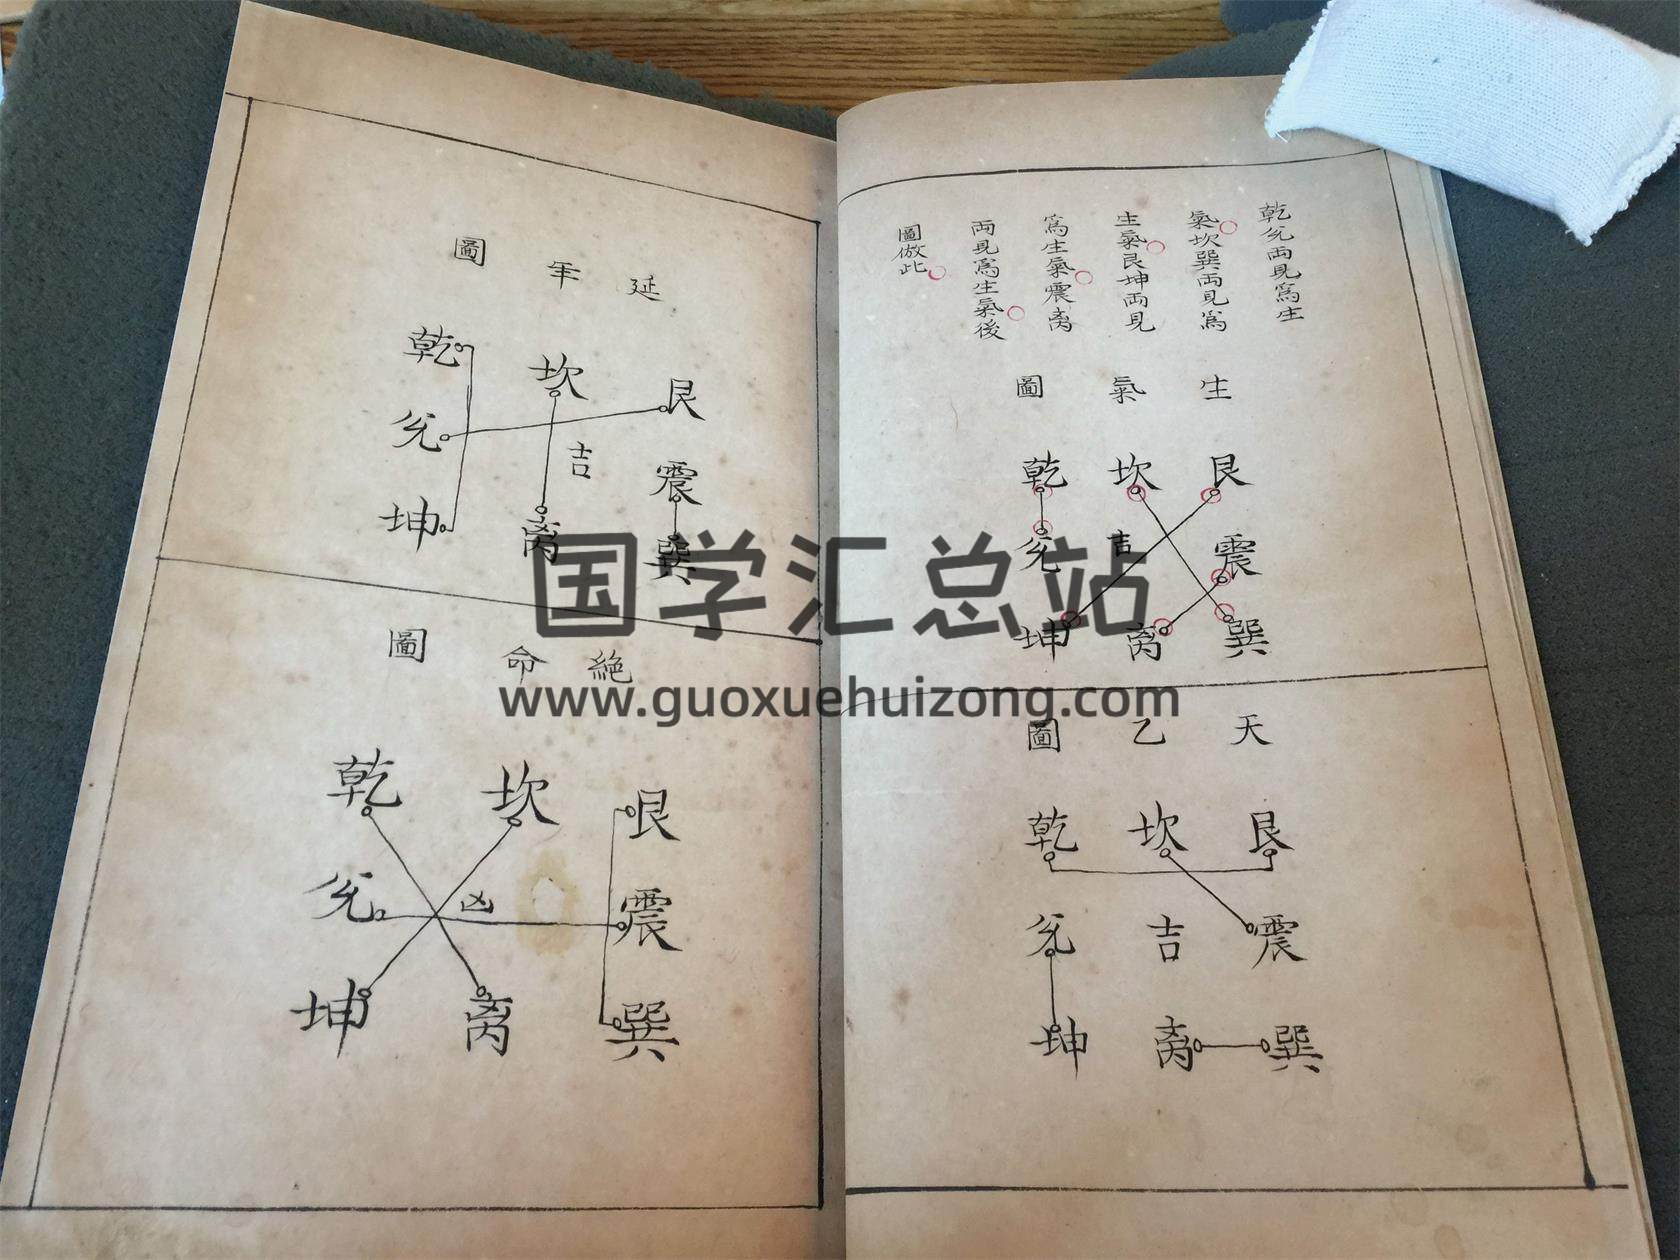 乾兊両見為生
氣坎巽両見為
生氣艮坤両見
為生氣震离
両見為生氣後
圖倣此
生氣圖
乾 坎 艮
兊 吉 震
坤 离 巽
天乙圖
乾 坎 艮
兊 吉 震
坤 离 巽
延年圖
乾 坎 艮
兊 吉 震
坤 离 巽
絕命圖
乾 坎 艮
兊 凶 震
坤 离 巽
国学汇总站
www.guoxuehuizong.com